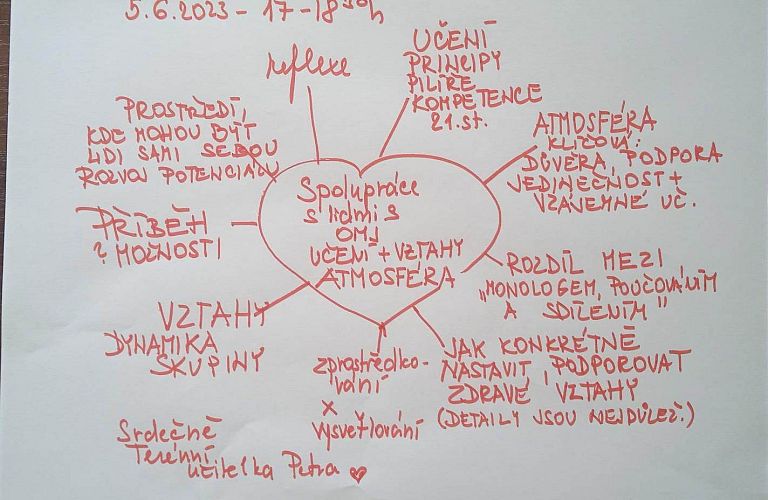 5.6.2023 - 17-18³⁰h
reflexe
UČENÍ
PRINCIPY
PILÍŘE
KOMPETENCE
21.st.
PROSTŘEDÍ,
KDE MOHOU BÝT
LIDI SAMI SEBOU
ROZVOJ POTENCIÁLU
ATMOSFÉRA
KLÍČOVÁ:
DŮVĚRA, PODPORA
JEDINEČNOST +
VZÁJEMNÉ UČ.
Spolupráce
s lidmi s
OMJ
UČENÍ + VZTAHY
ATMOSFÉRA
PŘÍBĚH
? MOŽNOSTI
ROZDÍL MEZI
„MONOLOGEM, POUČOVÁNÍM
A SDÍLENÍM"
VZTAHY
DYNAMIKA
SKUPINY
zprostředko-
vání
x
vysvětlování
JAK KONKRÉTNĚ
NASTAVIT, PODPOROVAT
ZDRAVÉ VZTAHY
(DETAILY JSOU NEJDŮLEŽ.)
Srdečně
Terénní
učitelka Petra ♥